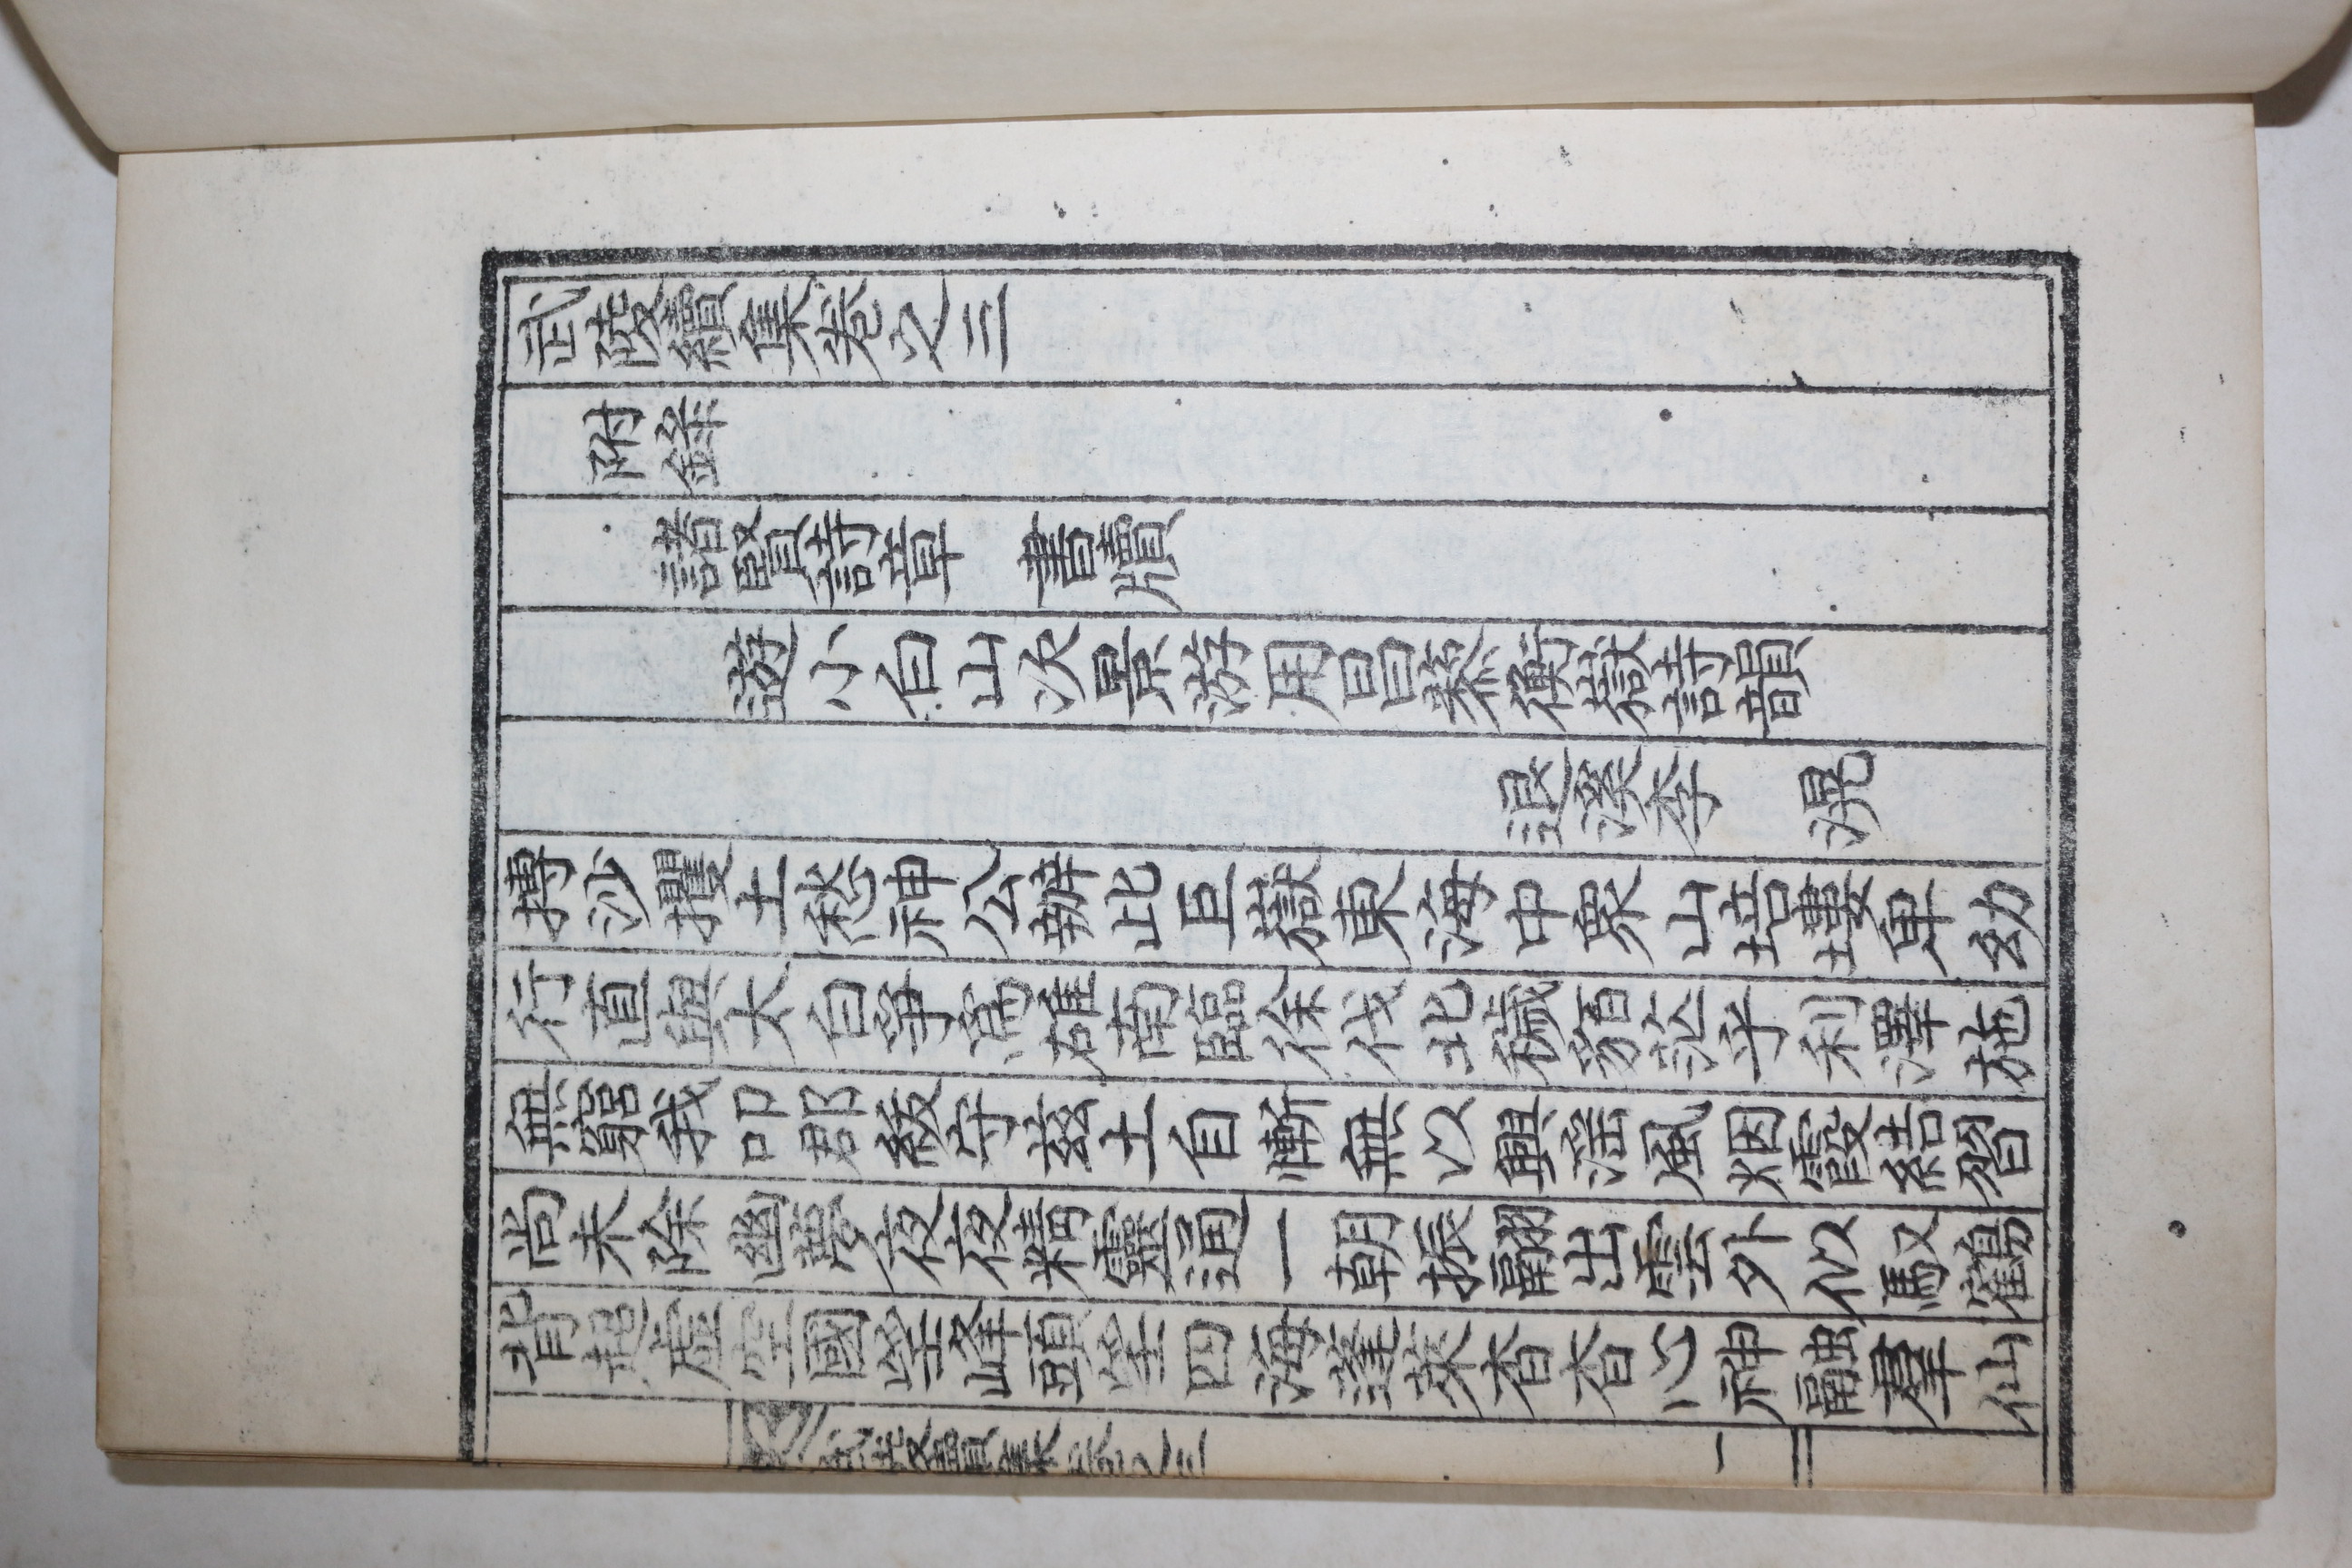 武陵續集卷之三
附錄
諸賢詩章　書牘
遊小白山次景游用昌黎衡嶽詩韻
退溪李　滉
搏沙攫土愁神公辦此巨嶽東海中衆山培塿卑幼
行直與太白爭爲雄南臨徐伐北穢貊茫乎利澤施
無窮我叨郡紱守玆土自慚無以興滛風烟霞結習
尚未除幽夢夜夜精靈通一朝振翮出雲外似馭鶴
背起虛空國望峰頭望四海蓬萊杳杳心神融羣仙
武陵續集卷之三　一